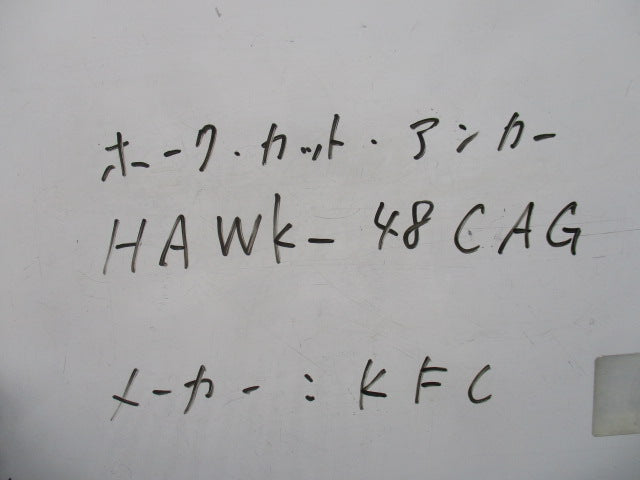 ホーク・カット・アンカー
HAWK-48CAG
メーカー:KFC